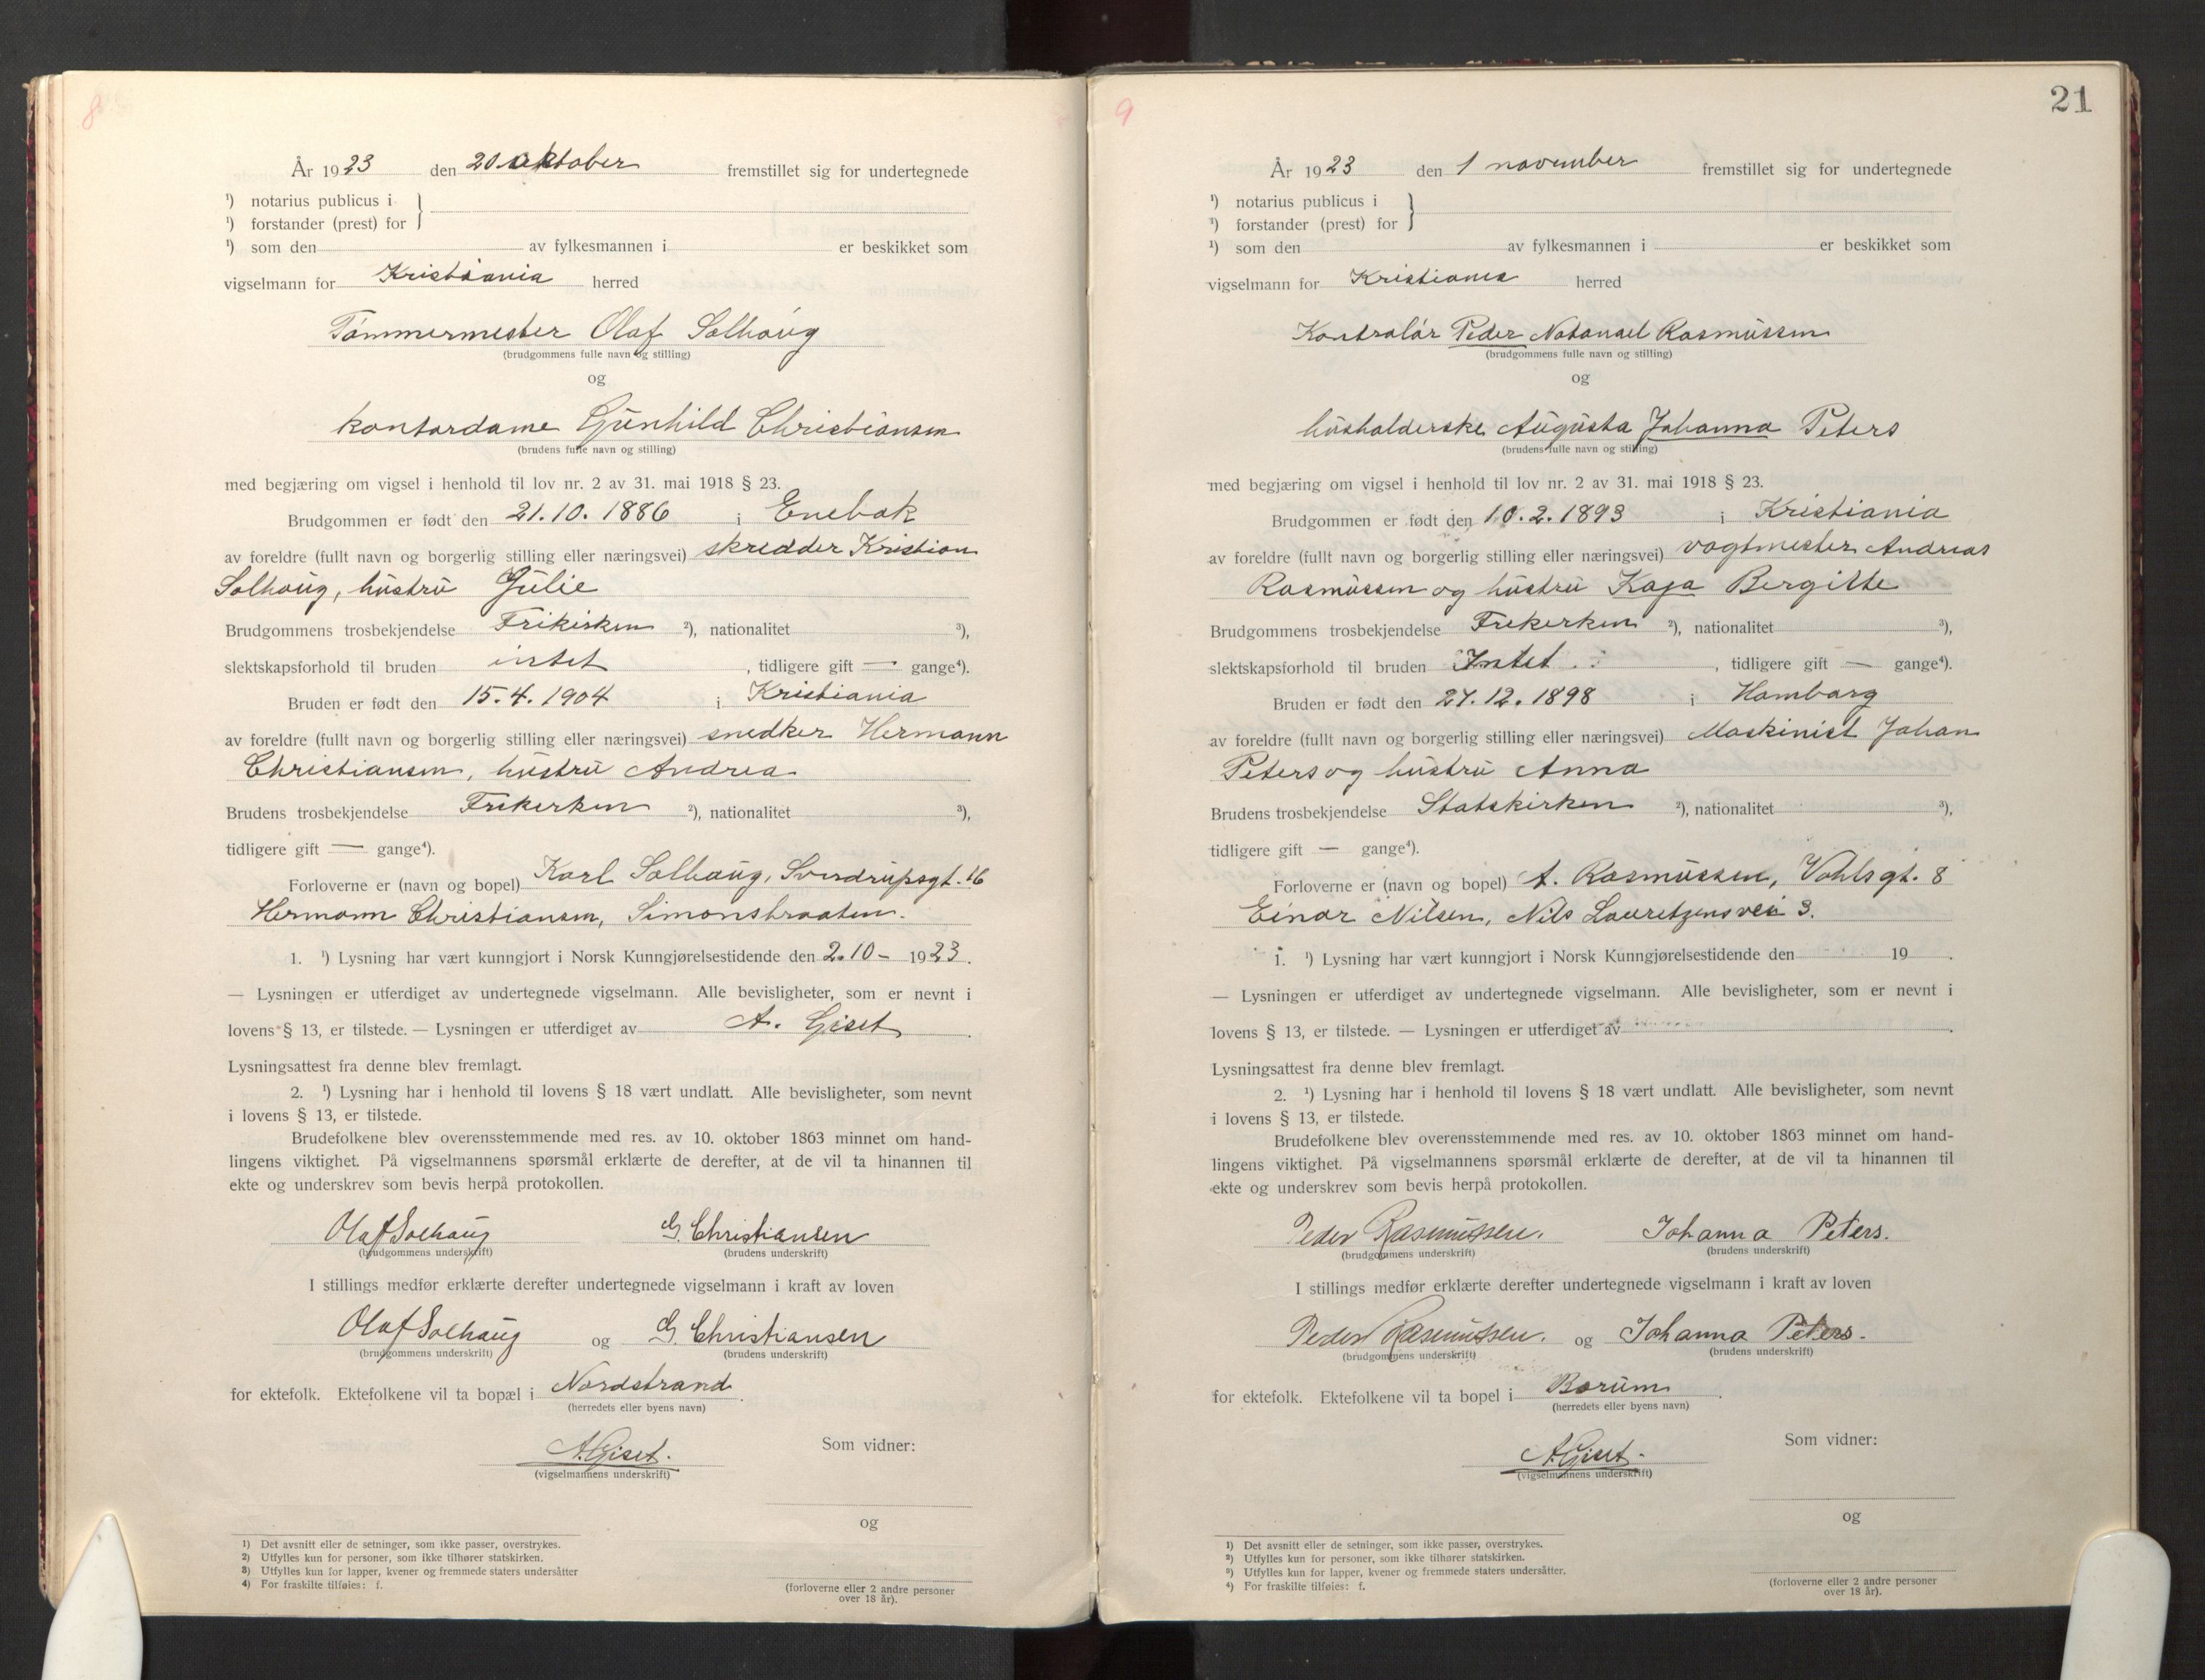 8
År 1923 den 20 oktober fremstillet sig for undertegnede
¹) notarius publicus i
¹) forstander (prest) for
¹) som den av fylkesmannen i er beskikket som
vigselmann for Kristiania herred
Tømmermester Olaf Solhaug
(brudgommens fulle navn og stilling)
og
kontordame Gunhild Christiansen
(brudens fulle navn og stilling)
med begjæring om vigsel i henhold til lov nr. 2 av 31. mai 1918 § 23.
Brudgommen er født den 21.10.1886 i Enebak
av foreldre (fullt navn og borgerlig stilling eller næringsvei) skredder Kristian
Solhaug, hustru Gulie
Brudgommens trosbekjendelse Frikirken ²), nationalitet ³),
slektskapsforhold til bruden intet, tidligere gift — gange⁴).
Bruden er født den 15.4.1904 i Kristiania
av foreldre (fullt navn og borgerlig stilling eller næringsvei) snedker Hermann
Christiansen, hustru Andrea
Brudens trosbekjendelse Frikerken ²), nationalitet ³),
tidligere gift — gange⁴).
Forloverne er (navn og bopel) Karl Solhaug, Sverdrupsgt. 16
Hermann Christiansen, Simonsbraaten.
1. ¹) Lysning har vært kunngjort i Norsk Kunngjørelsestidende den 2.10 - 1923.
— Lysningen er utferdiget av undertegnede vigselmann. Alle bevisligheter, som er nevnt i
lovens § 13, er tilstede. — Lysningen er utferdiget av A. Giset.
Lysningsattest fra denne blev fremlagt.
2. ¹) Lysning har i henhold til lovens § 18 vært undlatt. Alle bevisligheter, som nevnt
i lovens § 13, er tilstede.
Brudefolkene blev overensstemmende med res. av 10. oktober 1863 minnet om hand-
lingens viktighet. På vigselmannens spørsmål erklærte de derefter, at de vil ta hinannen til
ekte og underskrev som bevis herpå protokollen.
Olaf Solhaug G. Christiansen
(brudgommens underskrift) (brudens underskrift)
I stillings medfør erklærte derefter undertegnede vigselmann i kraft av loven
Olaf Solhaug og G. Christiansen
(brudgommens underskrift) (brudens underskrift)
for ektefolk. Ektefolkene vil ta bopæl i Nordstrand.
(herredets eller byens navn)
A. Giset. Som vidner:
(vigselmannens underskrift)
og
¹) Det avsnitt eller de setninger, som ikke passer, overstrykes.
²) Utfylles kun for personer, som ikke tilhører statskirken.
³) Utfylles kun for lapper, kvener og fremmede staters undersåtter
⁴) For fraskilte tilføies: f.
(forloverne eller 2 andre personer
over 18 år).
9
21
År 1923 den 1 november fremstillet sig for undertegnede
¹) notarius publicus i
¹) forstander (prest) for
¹) som den av fylkesmannen i er beskikket som
vigselmann for Kristiania herred
Kontrolør Peder Natanael Rasmussen
(brudgommens fulle navn og stilling)
og
husholderske Augusta Johanna Peters
(brudens fulle navn og stilling)
med begjæring om vigsel i henhold til lov nr. 2 av 31. mai 1918 § 23.
Brudgommen er født den 10.2.1893 i Kristiania
av foreldre (fullt navn og borgerlig stilling eller næringsvei) vagtmester Andreas
Rasmussen og hustru Kaja Bergitte
Brudgommens trosbekjendelse Frikerken ²), nationalitet ³),
slektskapsforhold til bruden Intet, tidligere gift — gange⁴).
Bruden er født den 27.12.1898 i Hamburg
av foreldre (fullt navn og borgerlig stilling eller næringsvei) Maskinist Johan
Peters og hustru Anna
Brudens trosbekjendelse Statskirken ²), nationalitet ³),
tidligere gift — gange⁴).
Forloverne er (navn og bopel) A. Rasmussen, Vahlsgt. 8
Einar Nilsen, Nils Lauretzensvei 3.
1. ¹) Lysning har vært kunngjort i Norsk Kunngjørelsestidende den 19 .
— Lysningen er utferdiget av undertegnede vigselmann. Alle bevisligheter, som er nevnt i
lovens § 13, er tilstede. — Lysningen er utferdiget av .
Lysningsattest fra denne blev fremlagt.
2. ¹) Lysning har i henhold til lovens § 18 vært undlatt. Alle bevisligheter, som nevnt
i lovens § 13, er tilstede.
Brudefolkene blev overensstemmende med res. av 10. oktober 1863 minnet om hand-
lingens viktighet. På vigselmannens spørsmål erklærte de derefter, at de vil ta hinannen til
ekte og underskrev som bevis herpå protokollen.
Peder Rasmussen. Johanna Peters.
(brudgommens underskrift) (brudens underskrift)
I stillings medfør erklærte derefter undertegnede vigselmann i kraft av loven
Peder Rasmussen. og Johanna Peters.
(brudgommens underskrift) (brudens underskrift)
for ektefolk. Ektefolkene vil ta bopel i Bærum.
(herredets eller byens navn)
A. Giset. Som vidner:
(vigselmannens underskrift)
og
¹) Det avsnitt eller de setninger, som ikke passer, overstrykes.
²) Utfylles kun for personer, som ikke tilhører statskirken.
³) Utfylles kun for lapper, kvener og fremmede staters undersåtter.
⁴) For fraskilte tilføies: f.
(forloverne eller 2 andre personer
over 18 år).